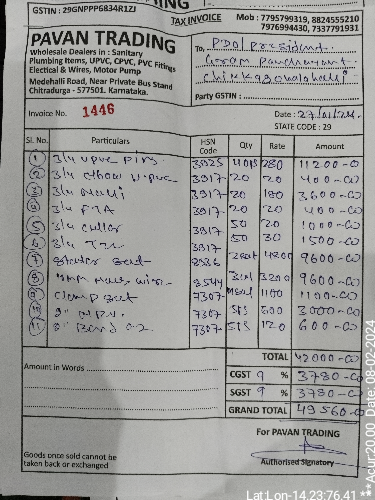 GSTIN : 29GNPPP6834R1ZJ
TAX INVOICE
Mob : 7795799319, 8824555210
7976994430, 7337791931
PAVAN TRADING
Wholesale Dealers in : Sanitary
Plumbing Items, UPVC, CPVC, PVC Fittings
Electical & Wires, Motor Pump
Medehalli Road, Near Private Bus Stand
Chitradurga - 577501. Karnataka.
To, PDO / president
Gram panchayat
Party GSTIN :
Invoice No. 1446
Date : 27/01/24
STATE CODE : 29
Sl. No. Particulars HSN Code Qty Rate Amount
1 3/4 upvc pips 3925 40ps 280 11200-00
2 3/4 elbow upvc 3917 20 20 400-00
3 3/4 3917 20 180 3600-00
4 3/4 FTA 3917 20 20 400-00
5 3/4 3917 50 20 1000-00
6 3/4 Tee 3917 50 30 1500-00
7 stater 8536 2 4800 9600-00
8 wire 8544 3 3200 9600-00
9 clamp set 7307 1100 1100-00
10 7307 5ps 600 3000-00
11 Bend 7307 5ps 120 600-00
TOTAL 42000-00
Amount in Words
CGST 9 % 3780-00
SGST 9 % 3780-00
GRAND TOTAL 49560-00
For PAVAN TRADING
Goods once sold cannot be
taken back or exchanged
Authorised Signatory
Lat:Lon-14.23:76.41 ***Acur:20.00 Date: 08-02-2024